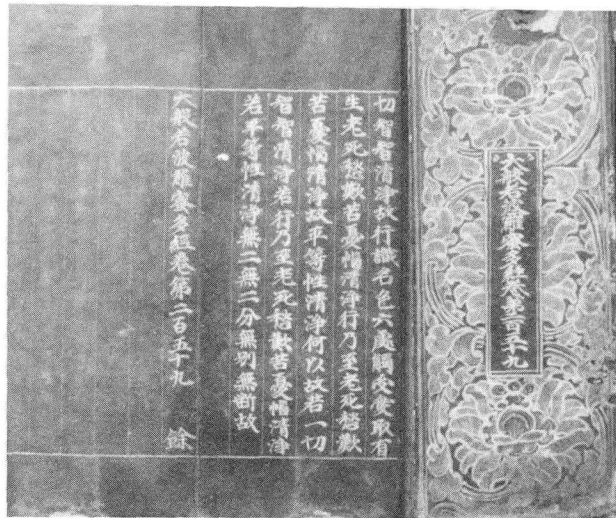 大般若波羅蜜多經卷第二百五十九
切智智清淨故行識名色六處觸受愛取有
生老死愁歎苦憂惱清淨行乃至老死愁歎
苦憂惱清淨故平等性清淨何以故若一切
智智清淨若行乃至老死愁歎苦憂惱清淨
若平等性清淨無二無二分無別無断故
大般若波羅蜜多經卷第二百五十九 餘